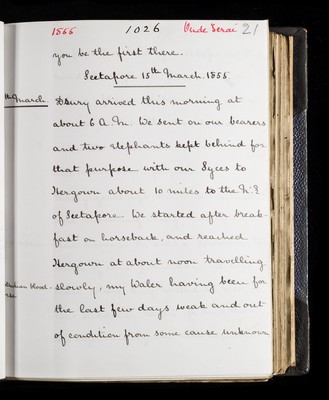 1855 1026 Vide Serai 21
you be the first there.
Seetapore 15th March. 1855
th March. Drury arrived this morning at
about 6 A.M. We sent on our bearers
and two elephants kept behind for
that purpose with our Syces to
Hergown about 10 miles to the N.E
of Seetapore. We started after break-
fast on horseback, and reached
Hergown at about noon travelling
slowly, my Waler having been for
the last few days weak and out
of condition from some cause unknown